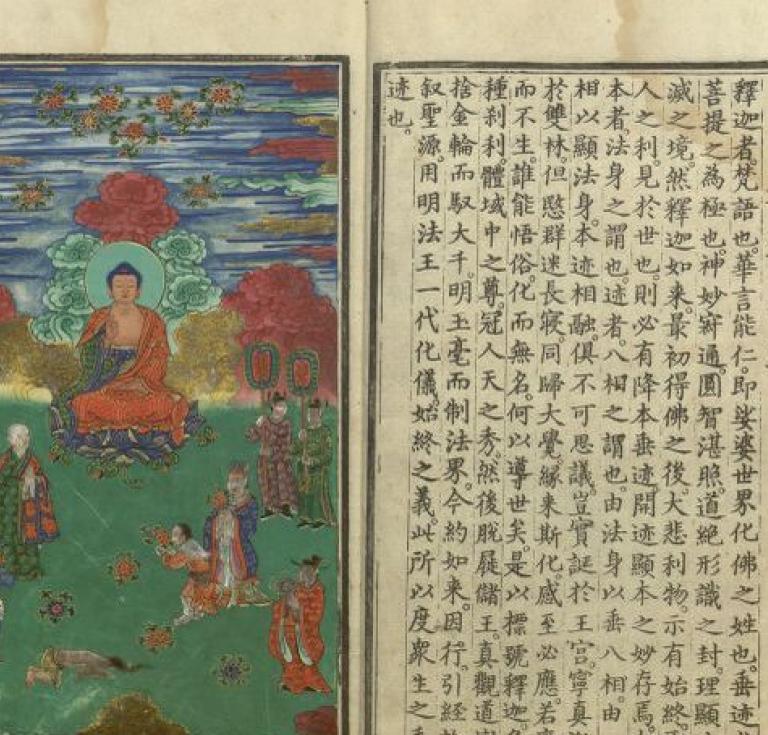 釋迦者梵語也。華言能仁。即娑婆世界化佛之姓也。垂迹
菩提之為極也。神妙寂通。圓智湛照。道絶形識之封。理顯
滅之境。然釋迦如来。最初得佛之後。大悲利物。示有始終。
人之利。見於世也。則必有降本垂迹開迹顯本之妙存焉。
本者。法身之謂也。迹者。八相之謂也。由法身以垂八相。由
相以顯法身。本迹相融。俱不可思議。豈實誕於王宮。寧真
於雙林。但愍群迷長寢。同歸大覺。緣来斯化。感至必應。若
而不生。誰能悟俗。化而無名。何以導世矣。是以標號釋迦。
種刹利。體域中之尊。冠人天之秀。然後脫屣儲王。真觀道
捨金輪而馭大千。明玉毫而制法界。今約如来。因行。引經
叙聖源。用明法王一代化儀。始終之義。此所以度衆生之
迹也。